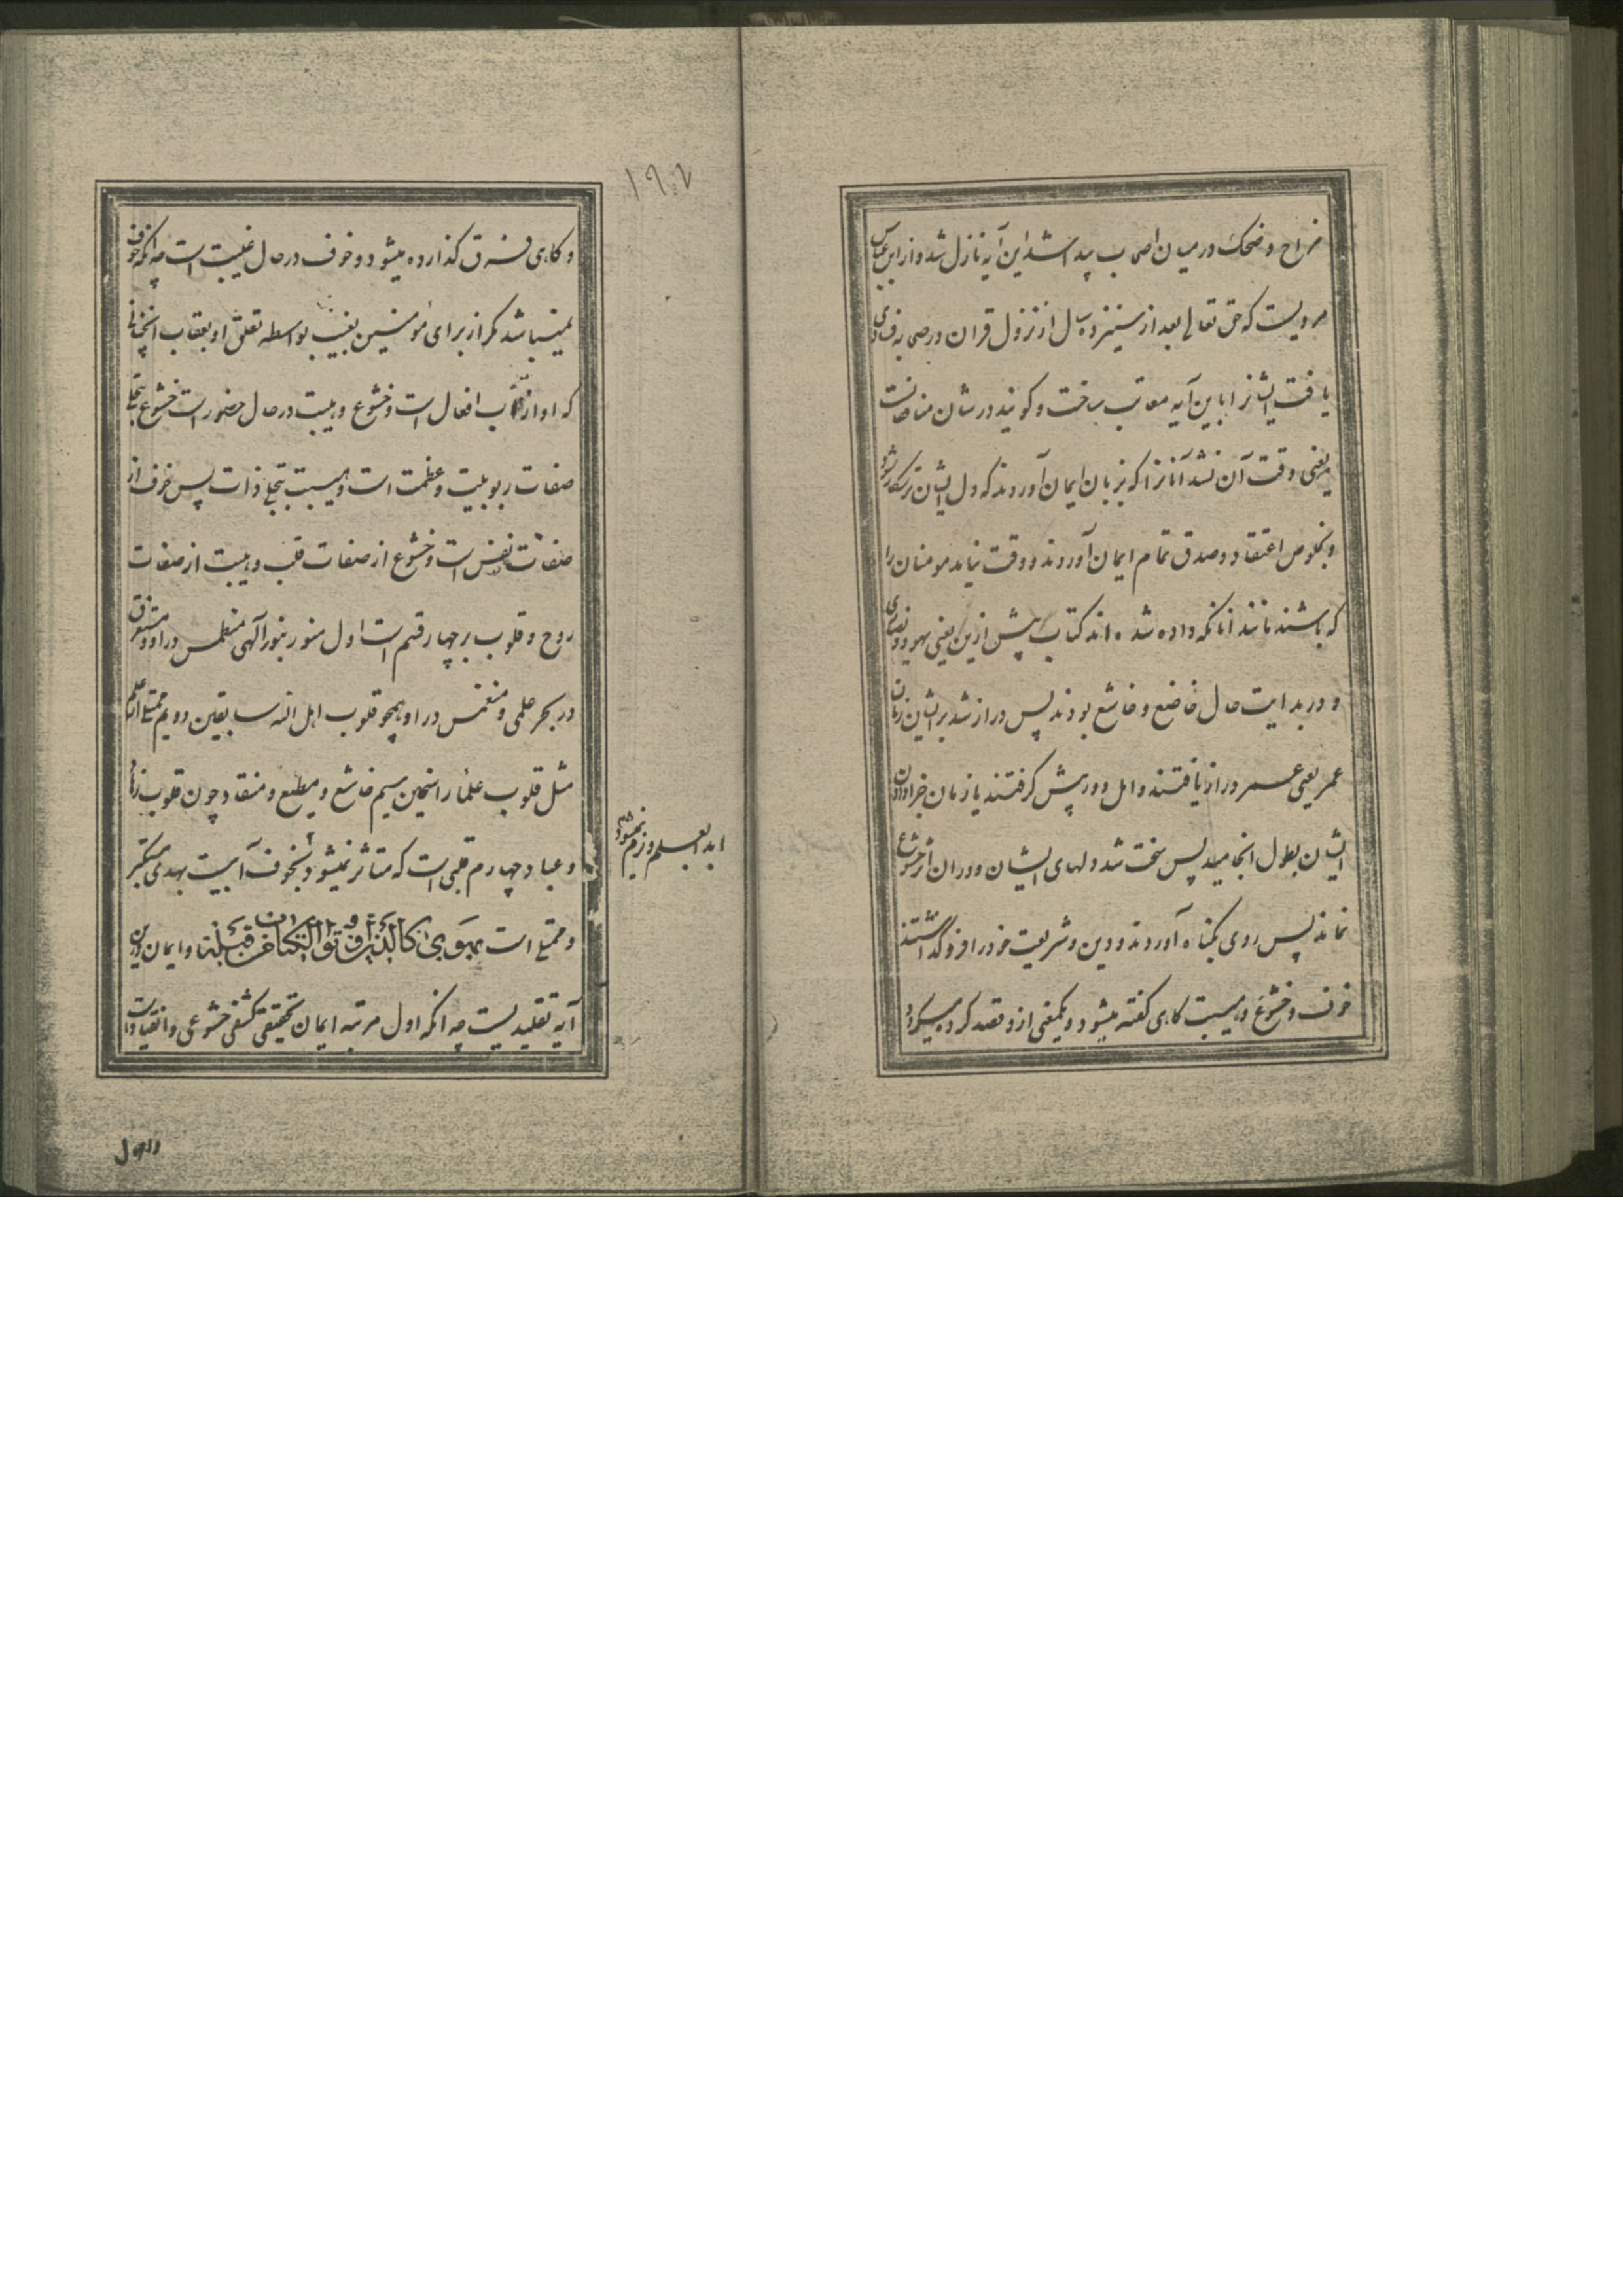 مزاح و ضحک در میان اصحاب پیدا شد این آیه نازل شد و از ابن عباس
مرویست که حق تعالی بعد از سیزده سال از نزول قران در صحابه
یافت ایشانرا باین آیه معاتب ساخت و کویند در شان منافقانست
یعنی وقت آن نشد آنانرا که بزبان ایمان آوردند که دل ایشان
و بخلوص اعتقاد و صدق تمام ایمان آوردند و وقت نیامد مومنان را
که باشند مانند انانکه داده شده اند کتاب پیش ازین یعنی یهود و نصاری
و در بدایت حال خاضع و خاشع بودند پس دراز شد بر ایشان زمان
عمر یعنی عمر دراز یافتند و امل دور پیش کرفتند یا زمان
ایشان بطول انجامید پس سخت شد دلهای ایشان و در ان اثر خشوع
نماند پس روی بکناه آوردند و دین و شریعت خود را فرو گذاشتند
خوف و خشوع و هیبت کاهی کفته میشود و یکمعنی ازو قصد کرده میکردد
١٩٤
و کاهی فرق کذارده میشود و خوف در حال غیبت است چه انکه خوف
نمیباشد مکر از برای مؤمنین بغیب بواسطه تعلق او بعقاب
که او از باب افعال است و خشوع و هیبت در حال حضور است خشوع بتجلی
صفات ربوبیت و عظمت است و هیبت بتجلی ذات پس خوف از
صفات نفس است و خشوع از صفات قلب و هیبت از صفات
روح و قلوب بر چهار قسم است اول منور بنور آلهی منطمس در او و مستغرق
در بحر علمی و منغمس در او همچو قلوب اهل الله سابقین دویم ممتلی از علم
مثل قلوب علماء راسخین سیم خاشع و مطیع و منقاد چون قلوب زهاد
و عباد چهارم قلبی است که متاثر نمیشود بخوف آبیست بهدی متکبر
ابدا بعلم و نرم نمیشود
و ممتلی است بهوی كالذین اوتوا الکتاب من قبل و ایمان درین
آیه تقلیدیست چه انکه اول مرتبه ایمان تحقیقی کشفی خشوعی و انقیاد است
و اول